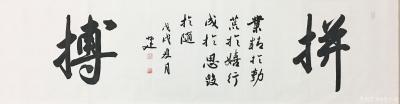 拼
業精於勤
荒於嬉行
成於思毁
於隨
戊戌夏月
搏